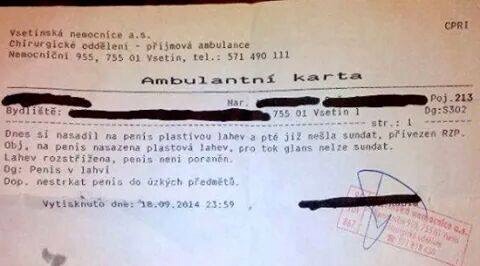 Vsetínská nemocnice a.s.
CPRI
Chirurgické oddělení - příjmová ambulance
Nemocniční 955, 755 01 Vsetín, tel.: 571 490 111
Ambulantní karta
Nar. Poj.213
Bydliště: 755 01 Vsetín 1 Dg:S302
str.: 1
Dnes si nasadil na penis plastivou lahev a pté již nešla sundat, přivezen RZP.
Obj, na penis nasazena plastová lahev, pro tok glans nelze sundat.
Lahev rozstřižena, penis není poraněn.
Dg: Penis v lahvi
Dop. nestrkat penis do úzkých předmětů.
Vytisknuto dne: 18.09.2014 23:59
nemocnice a.s.